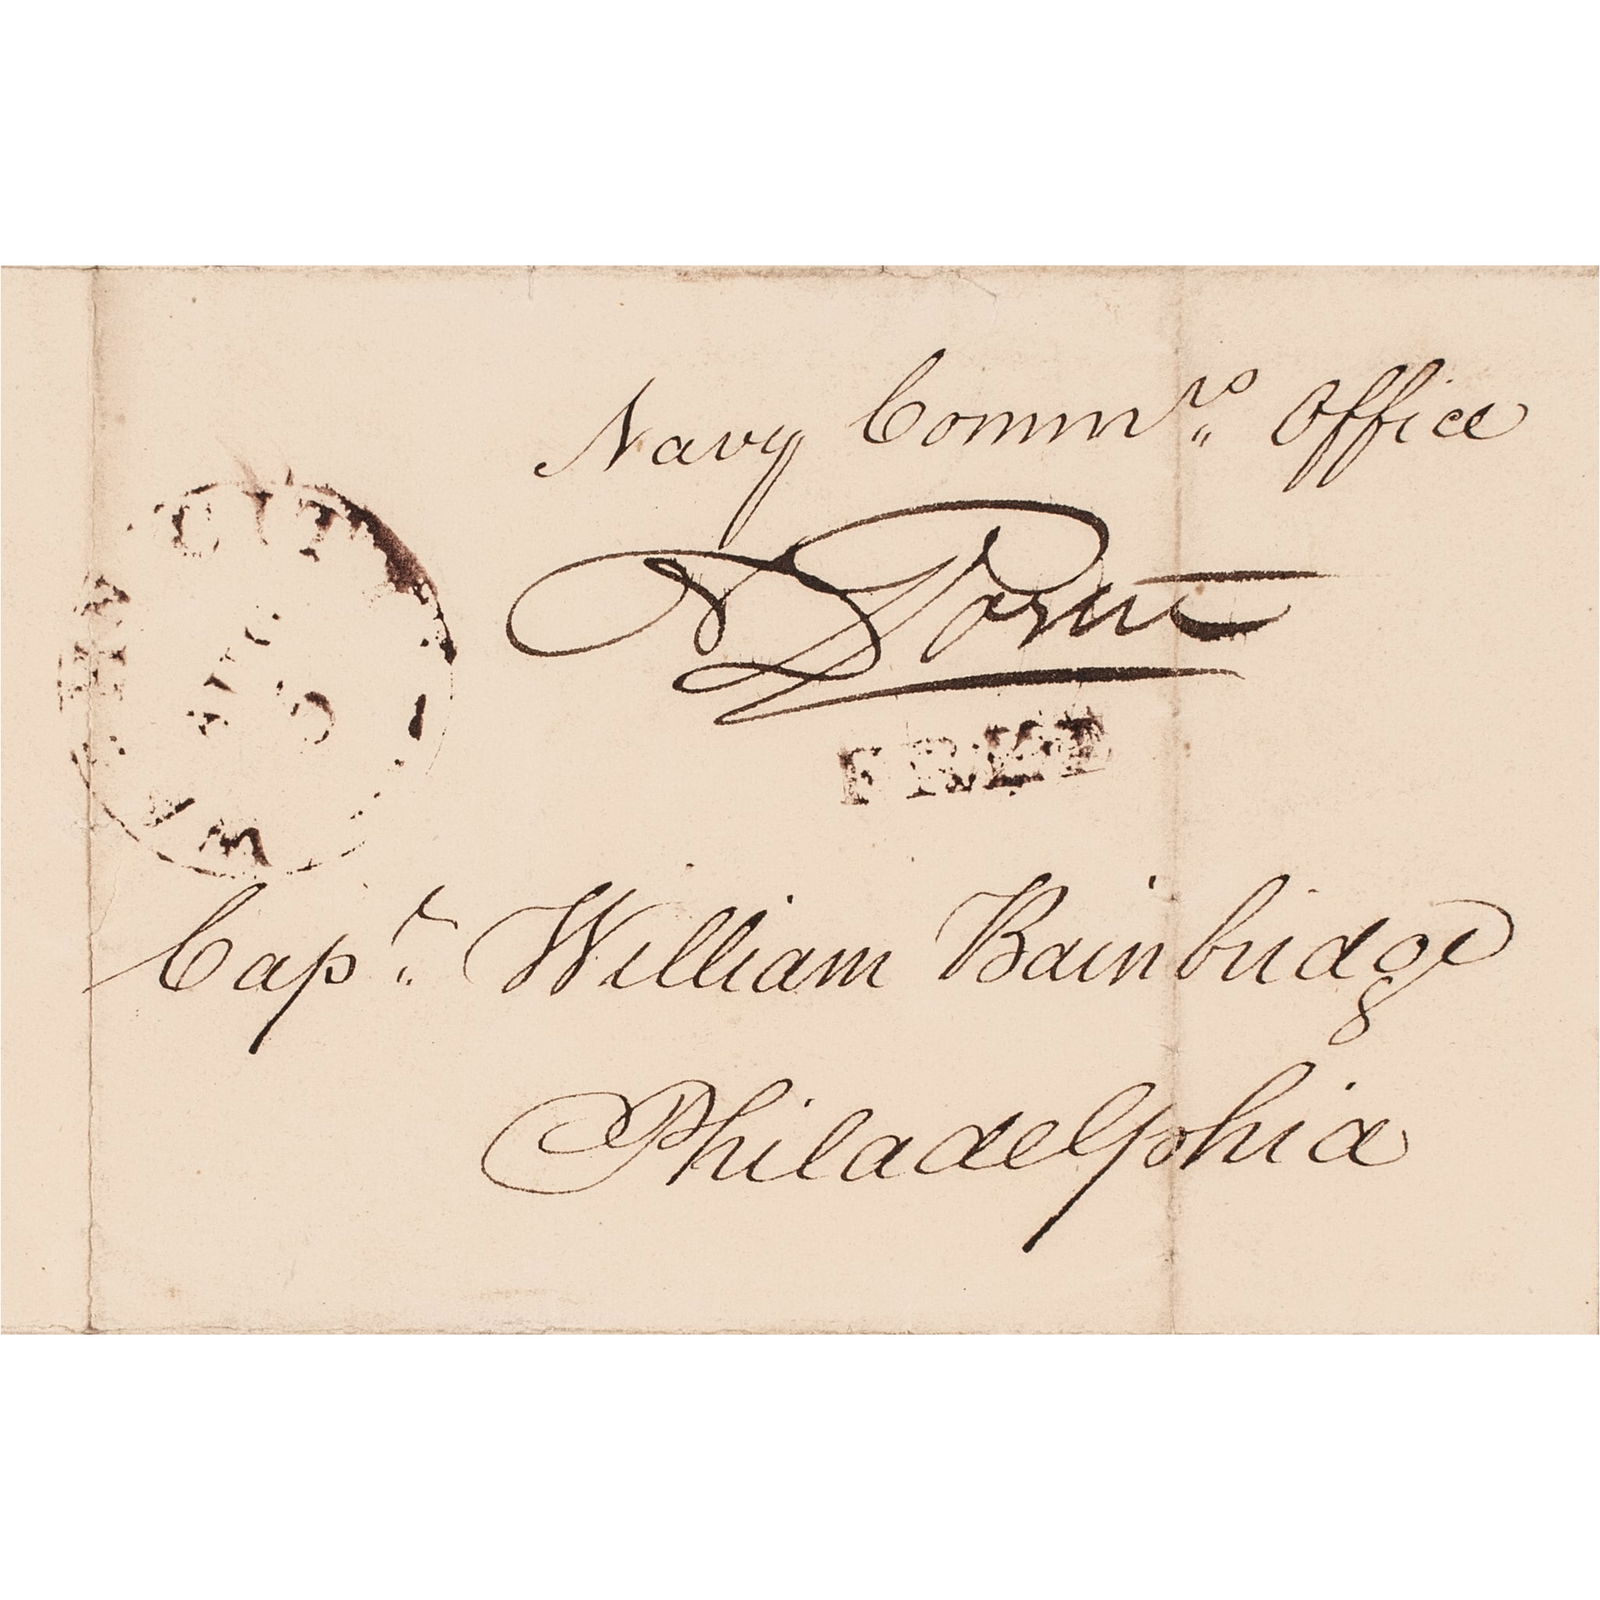 Navy Commrs Office
FREE
CITY
AUG
Capt. William Bainbridge
Philadelphia